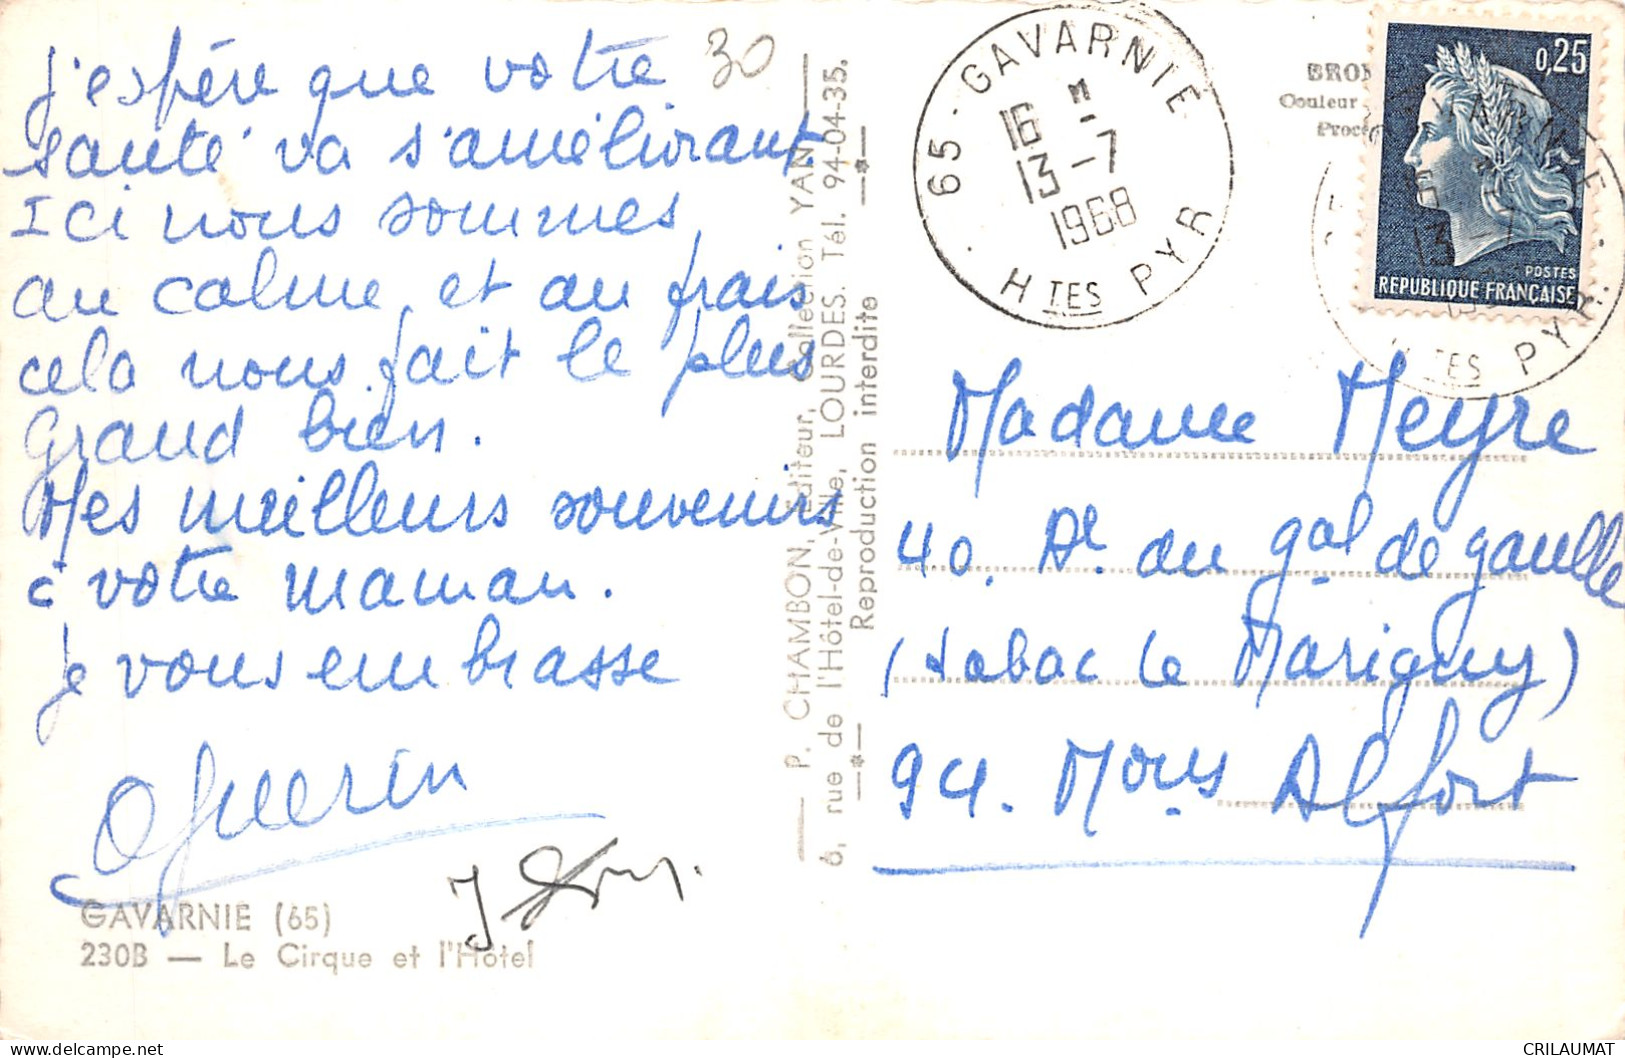 j'espère que votre
santé va s'améliorant
Ici nous sommes
au calme, et au frais
cela nous fait le plus
Grand bien.
Mes meilleurs souvenirs
à votre maman.
je vous embrasse
Guerin
GAVARNIE (65)
230B — Le Cirque et l'Hôtel
30
P. CHAMBON, Editeur, Collection YAN
6, rue de l'Hôtel-de-Ville, LOURDES. Tél. 94-04-35.
Reproduction interdite
65 - GAVARNIE
16
13-7
1968
HTES PYR
Couleur
0,25
POSTES
REPUBLIQUE FRANÇAISE
Madame Meyre
40. Av. du gal de gaulle
(tabac le Marigny)
94. Mons Alfort
CRILAUMAT